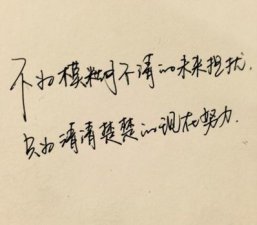 不为模糊不清的未来担扰.
只为清清楚楚的现在努力.